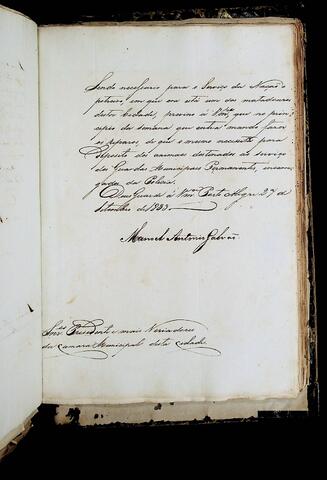 Sendo necessario para o Serviço da Nação o
potreiro, em que se está um dos matadouros
desta Cidade, previno à V.mces que no prin-
cipio da semana que entra mando fazer
os reparos de que o mesmo necessita para
deposito dos animaes destinados ao serviço
dos Guardas Municipaes Permanentes, encarre-
gados da Policia.
Deos Guarde a Vmces Porto Alegre 27 de
Setembro de 1833
Manoel Antonio Galvão
Snres Presidente e mais Vereadores
da Camara Municipal desta Cidade